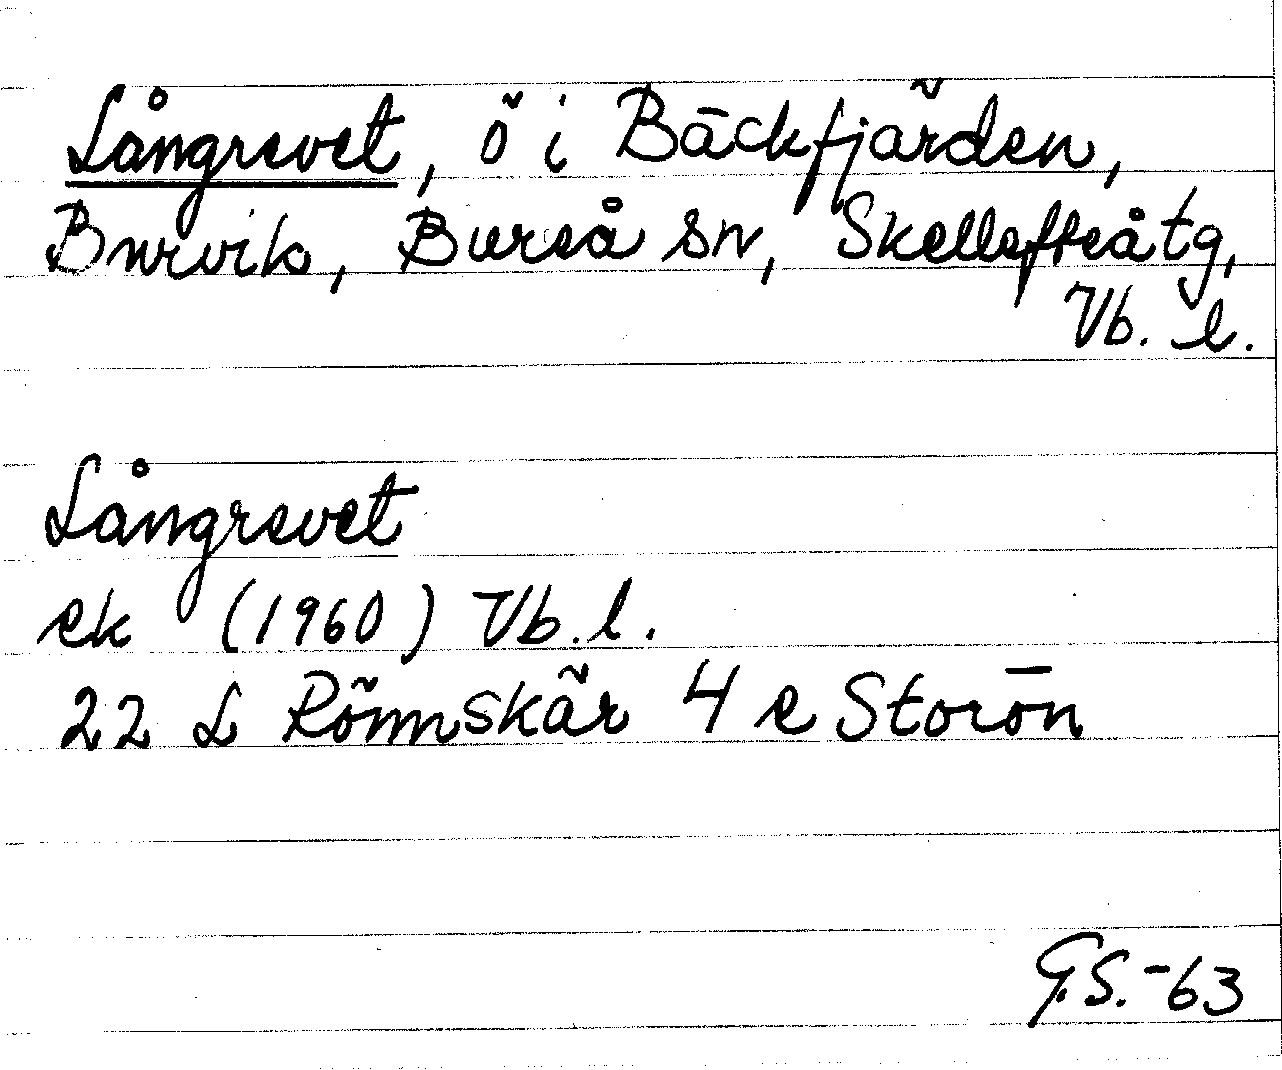 Långrevet, ö i Bäckfjärden,
Burvik, Bureå sn, Skellefteå tg,
Vb. l.
Långrevet
ek (1960) Vb. l.
22 L Rönnskär 4 e Storön
G.S. -63